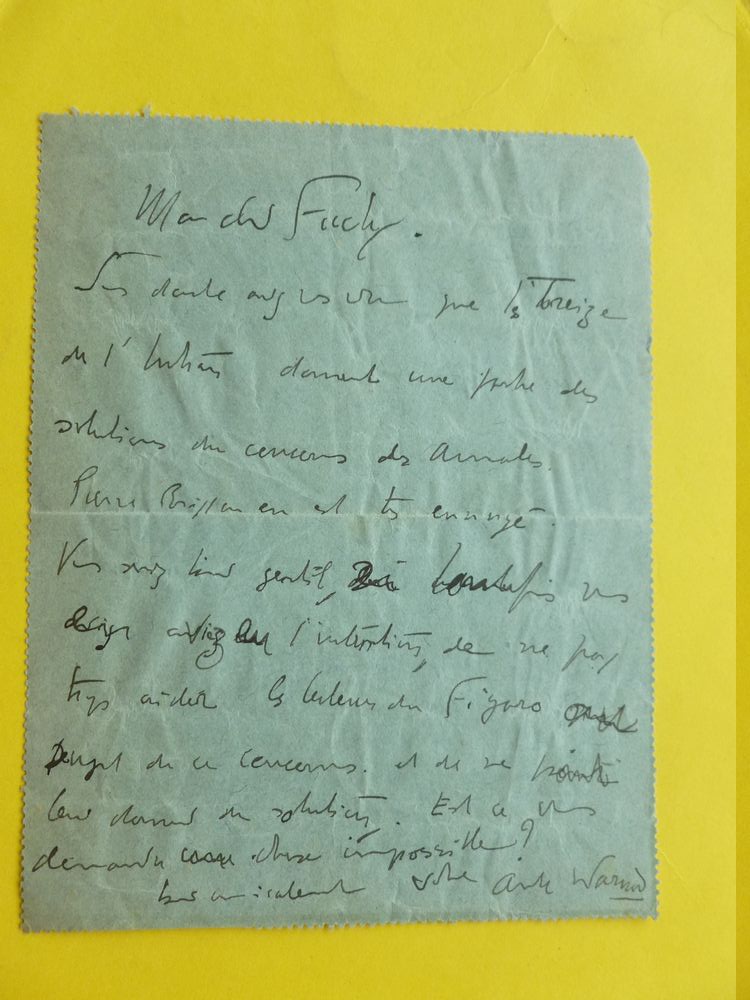 Mon cher Fuchs.
Sans doute avez vous vu que les Treize
de l'Intran donnent une partie des
solutions du concours des Annales.
Pierre Brisson en est très ennuyé.
Vous seriez bien gentil, si toutefois vous
aviez l'intention, de ne pas
trop aider les lecteurs du Figaro
au sujet de ce concours. et de ne point
leur donner de solutions. Est ce vous
demander une chose impossible?
bien amicalement votre André Warnod